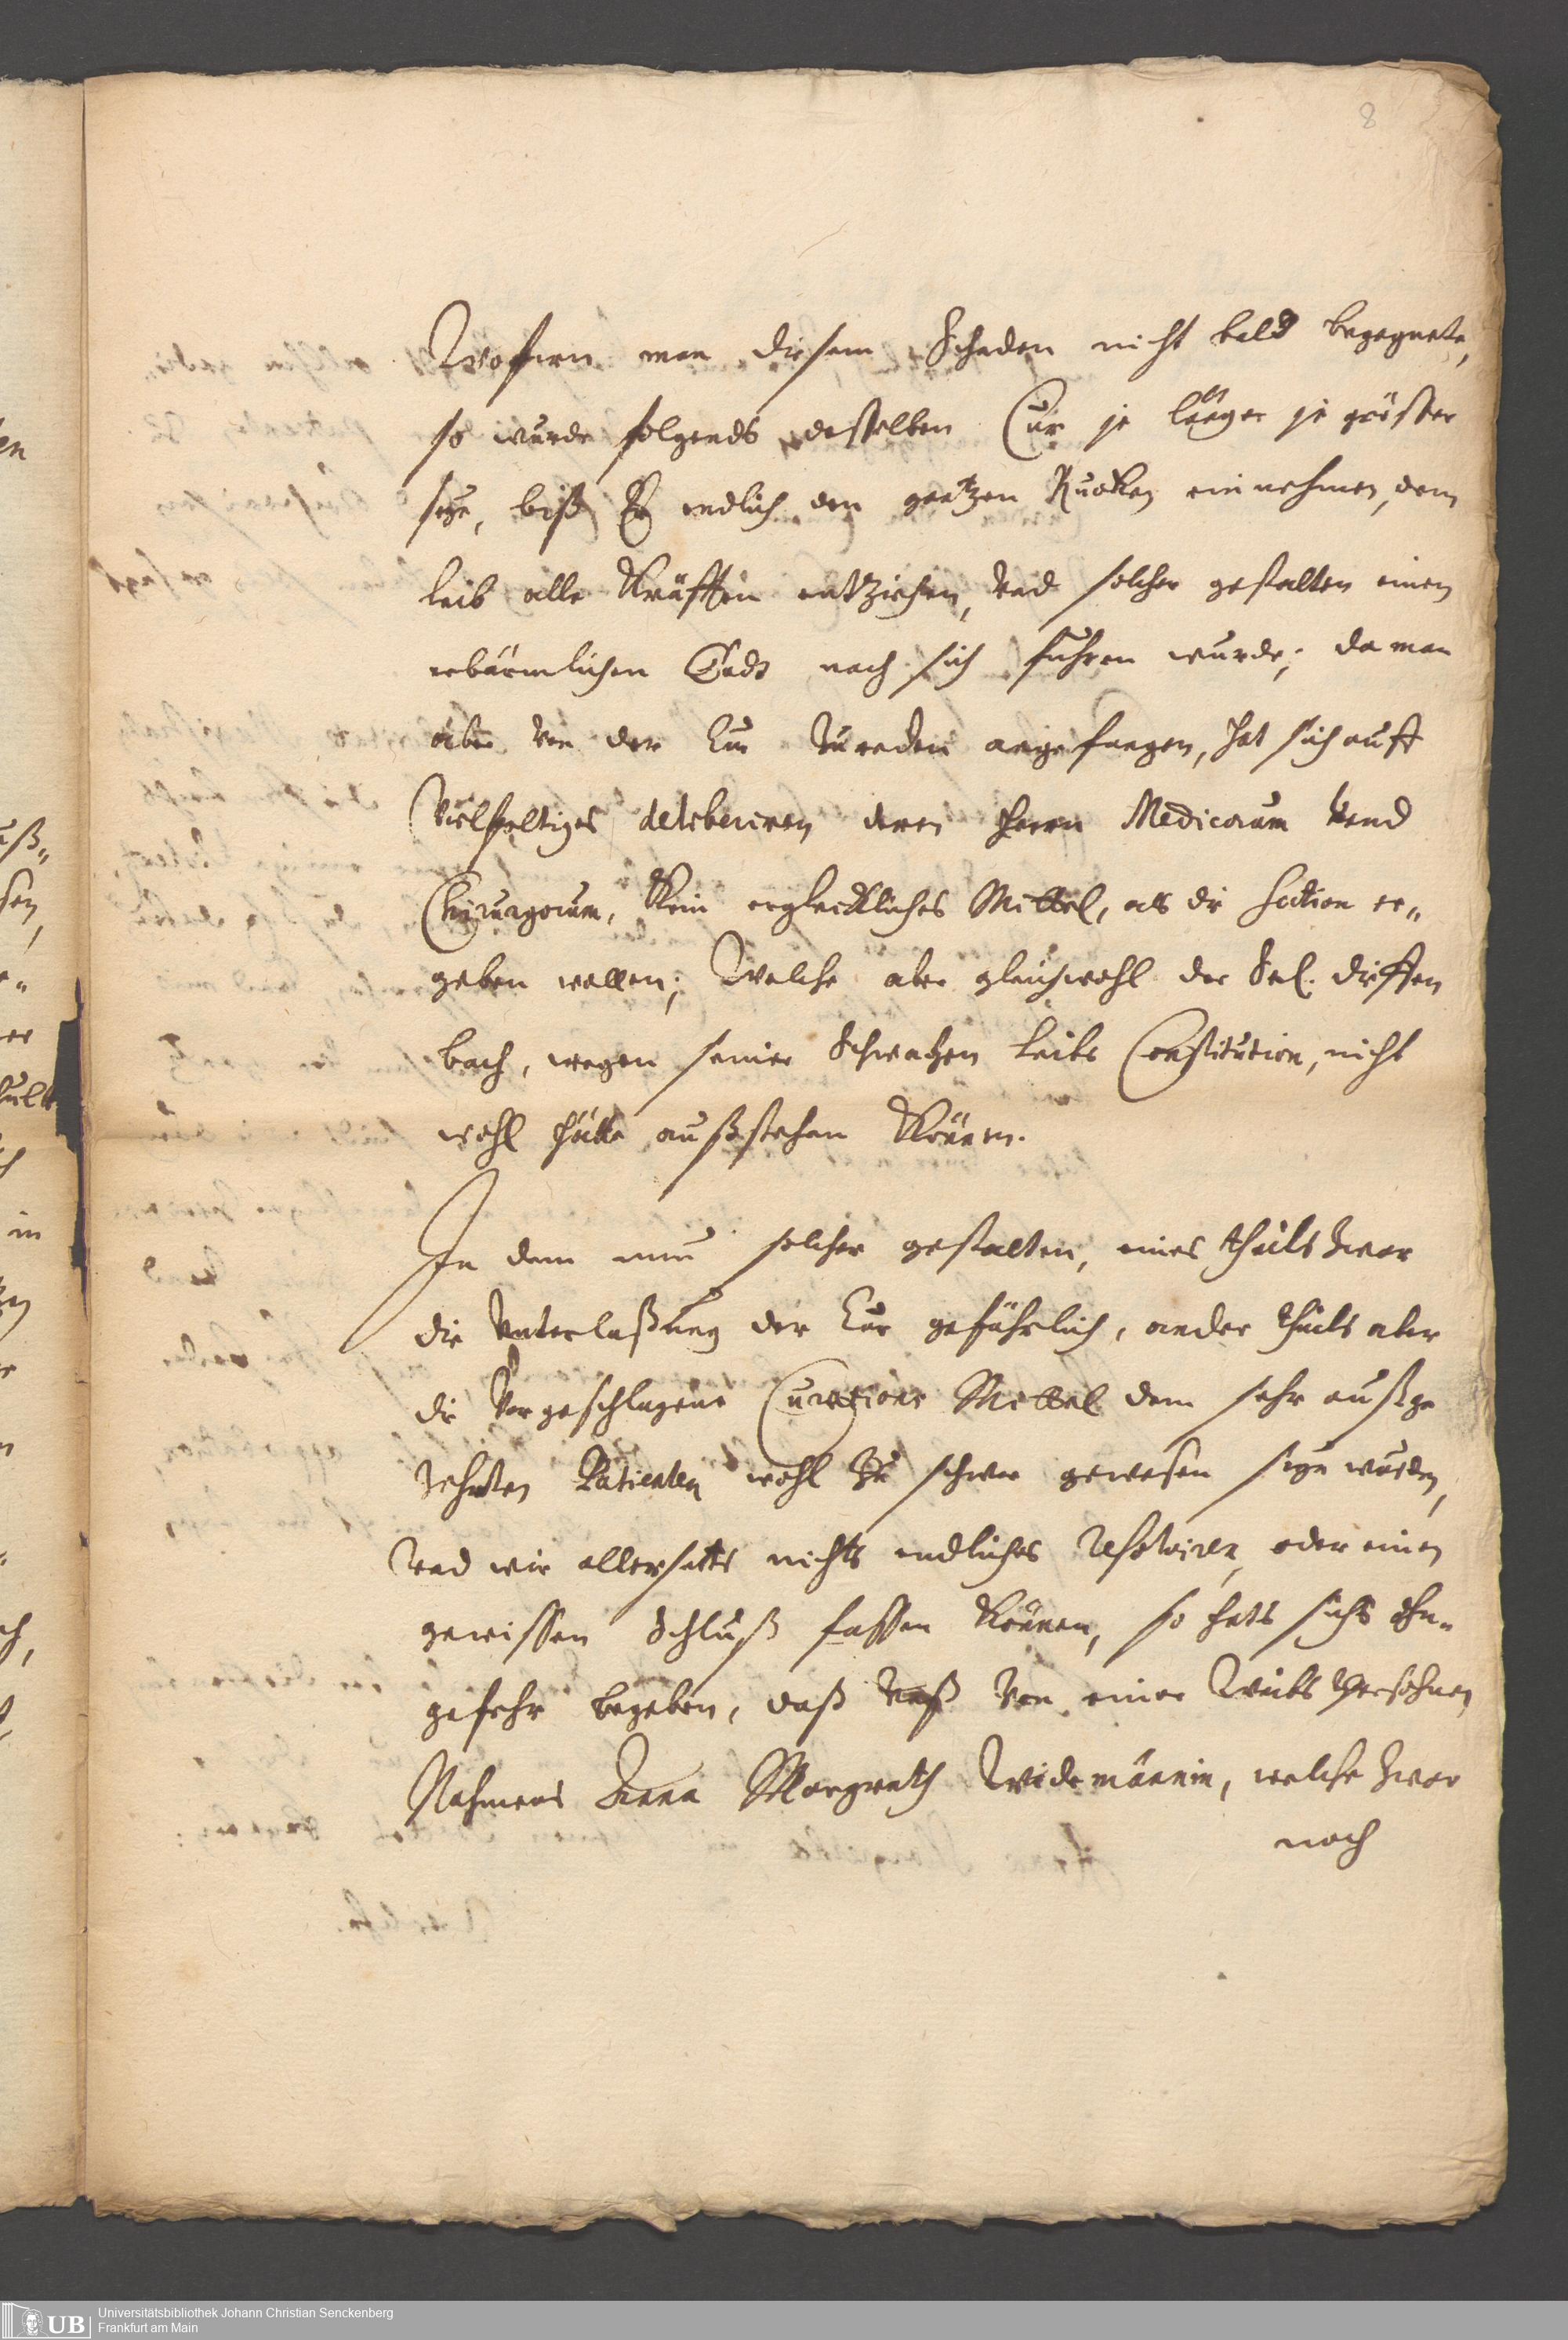 8
Wofern man diesem Schaden nicht bald begegnete,
so wurde folgends desselben Cur je länger je grösser
seyn, biß Er endlich den gantzen Rucken einnehmen, dem
Leib alle Kräfften entziehen, vnd solcher gestalten einen
erbärmlichen Todt nach sich führen wurde; da man
aber von der Cur zureden angefangen, hat sich auff
Vielfaltiges deliberiren deren Herrn Medicorum vnnd
Chirurgorum, Kein ergleckliches Mittel, als die Section er„
geben wollen; Welche aber gleichwohl der Sel. Dieffen
bach, wegen seiner Schwachen Leibs Constitution, nicht
wohl hätte außstehen Können.
In dem nun solcher gestalten, eines theils zwar
die Vnterlaßung der Cur gefährlich, ander theils aber
die Vorgeschlagene Curations Mittel dem sehr außge
zehrten Patienten wohl zu schwer gewesen seyn wurden,
vnd wir allerseits nichts endliches resolviren, oder einen
gewissen Schluß fassen Können, so hats sichs ohn„
gefehr begeben, daß vnß von einer Weibs Persohnen
Nahmens Anna Margreth Widemännin, welche zwar
noch
UB
Universitätsbibliothek Johann Christian Senckenberg
Frankfurt am Main